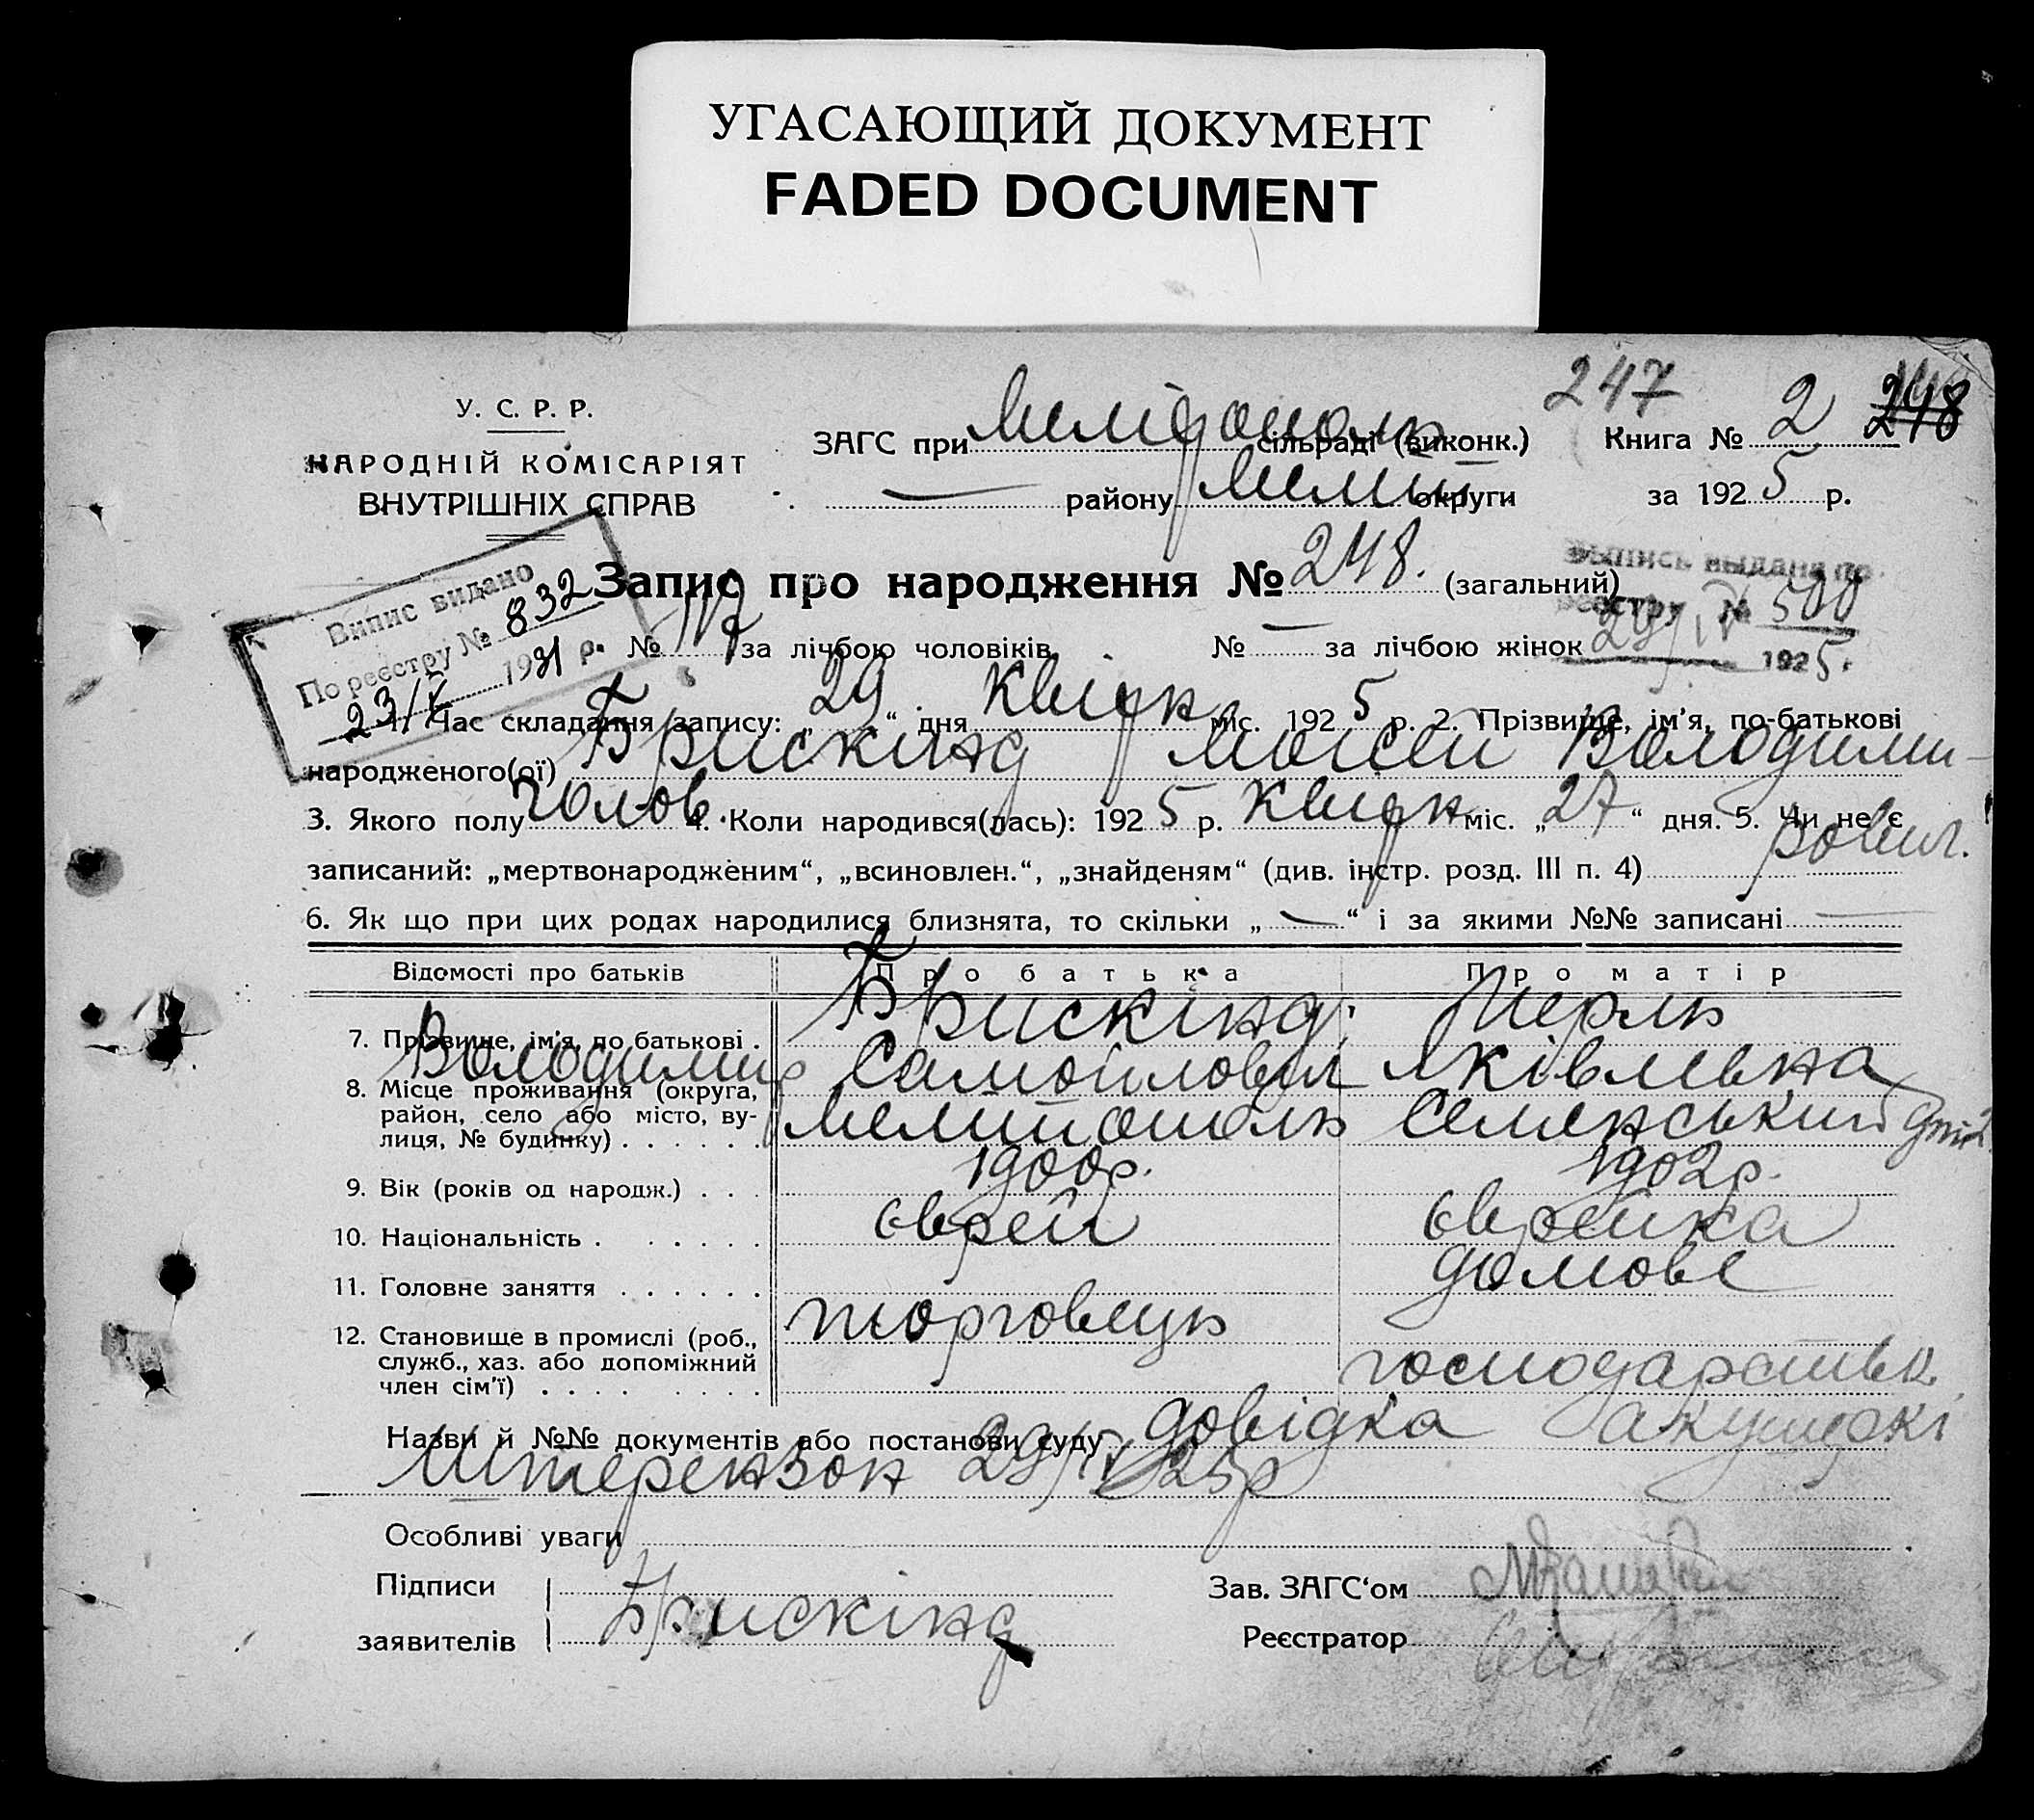 УГАСАЮЩИЙ ДОКУМЕНТ
FADED DOCUMENT
247
У. С. Р. Р.
НАРОДНІЙ КОМІСАРІЯТ
ВНУТРІШНІХ СПРАВ
ЗАГС при сільраді (виконк.) Книга № 2 248
— району Меліт. округи за 1925 р.
Випис видано
По реєстру № 832
1931 р.
Запис про народження № 248. (загальний)
Выпись выдана по
реестру № 500
29/IV 1925 г.
№ 117 за лічбою чоловіків № — за лічбою жінок
1. Час складання запису: „29“ дня Квітн. міс. 1925 р. 2. Прізвище, ім'я, по-батькові
народженого(ої) Брискінд Мойсей Володими-
рович.
3. Якого полу чолов. 4. Коли народився(лась): 1925 р. Квітн міс. „27“ дня. 5. Чи не є
записаний: „мертвонародженим“, „всиновлен.“, „знайденям“ (див. інстр. розд. III п. 4)
6. Як що при цих родах народилися близнята, то скільки „—“ і за якими №№ записані —
Відомості про батьків Про батька Про матір
7. Прізвище, ім'я, по батькові . Брискінд Перль
Володимир Самойлович Яківлевна
8. Місце проживання (округа,
район, село або місто, ву-
лиця, № будинку) . . . . . . Мелітополь Семенський
9. Вік (років од народж.) . . . 1900р. 1902р.
10. Національність . . . . . . єврей єврейка
11. Головне заняття . . . . . . домове
12. Становище в промислі (роб., торговець
служб., хаз. або допоміжний
член сім'ї) . . . . . . . . . господарств
Назви й №№ документів або постанови суду довідка акушеркі
Штерензон 29/IV 25р
Особливі уваги
Підписи
заявителів Брискінд
Зав. ЗАГС'ом
Реєстратор